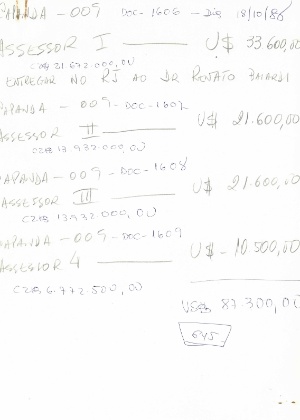 PAPANDA - 009 DOC-1606 - Dia 18/10/88
ASSESSOR I U$ 33.600,00
CZ$ 21.672.000,00
ENTREGAR NO RJ AO DR RENATO
PAPANDA - 009 - DOC-1607
ASSESSOR II U$ 21.600,00
CZ$ 13.932.000,00
PAPANDA - 009 - DOC-1608
ASSESSOR III U$ 21.600,00
CZ$ 13932.000,00
PAPANDA - 009 - DOC-1609
ASSESSOR 4 U$ - 10.500,00
CZ$ 6.772.500,00
US$ 87.300,00
645